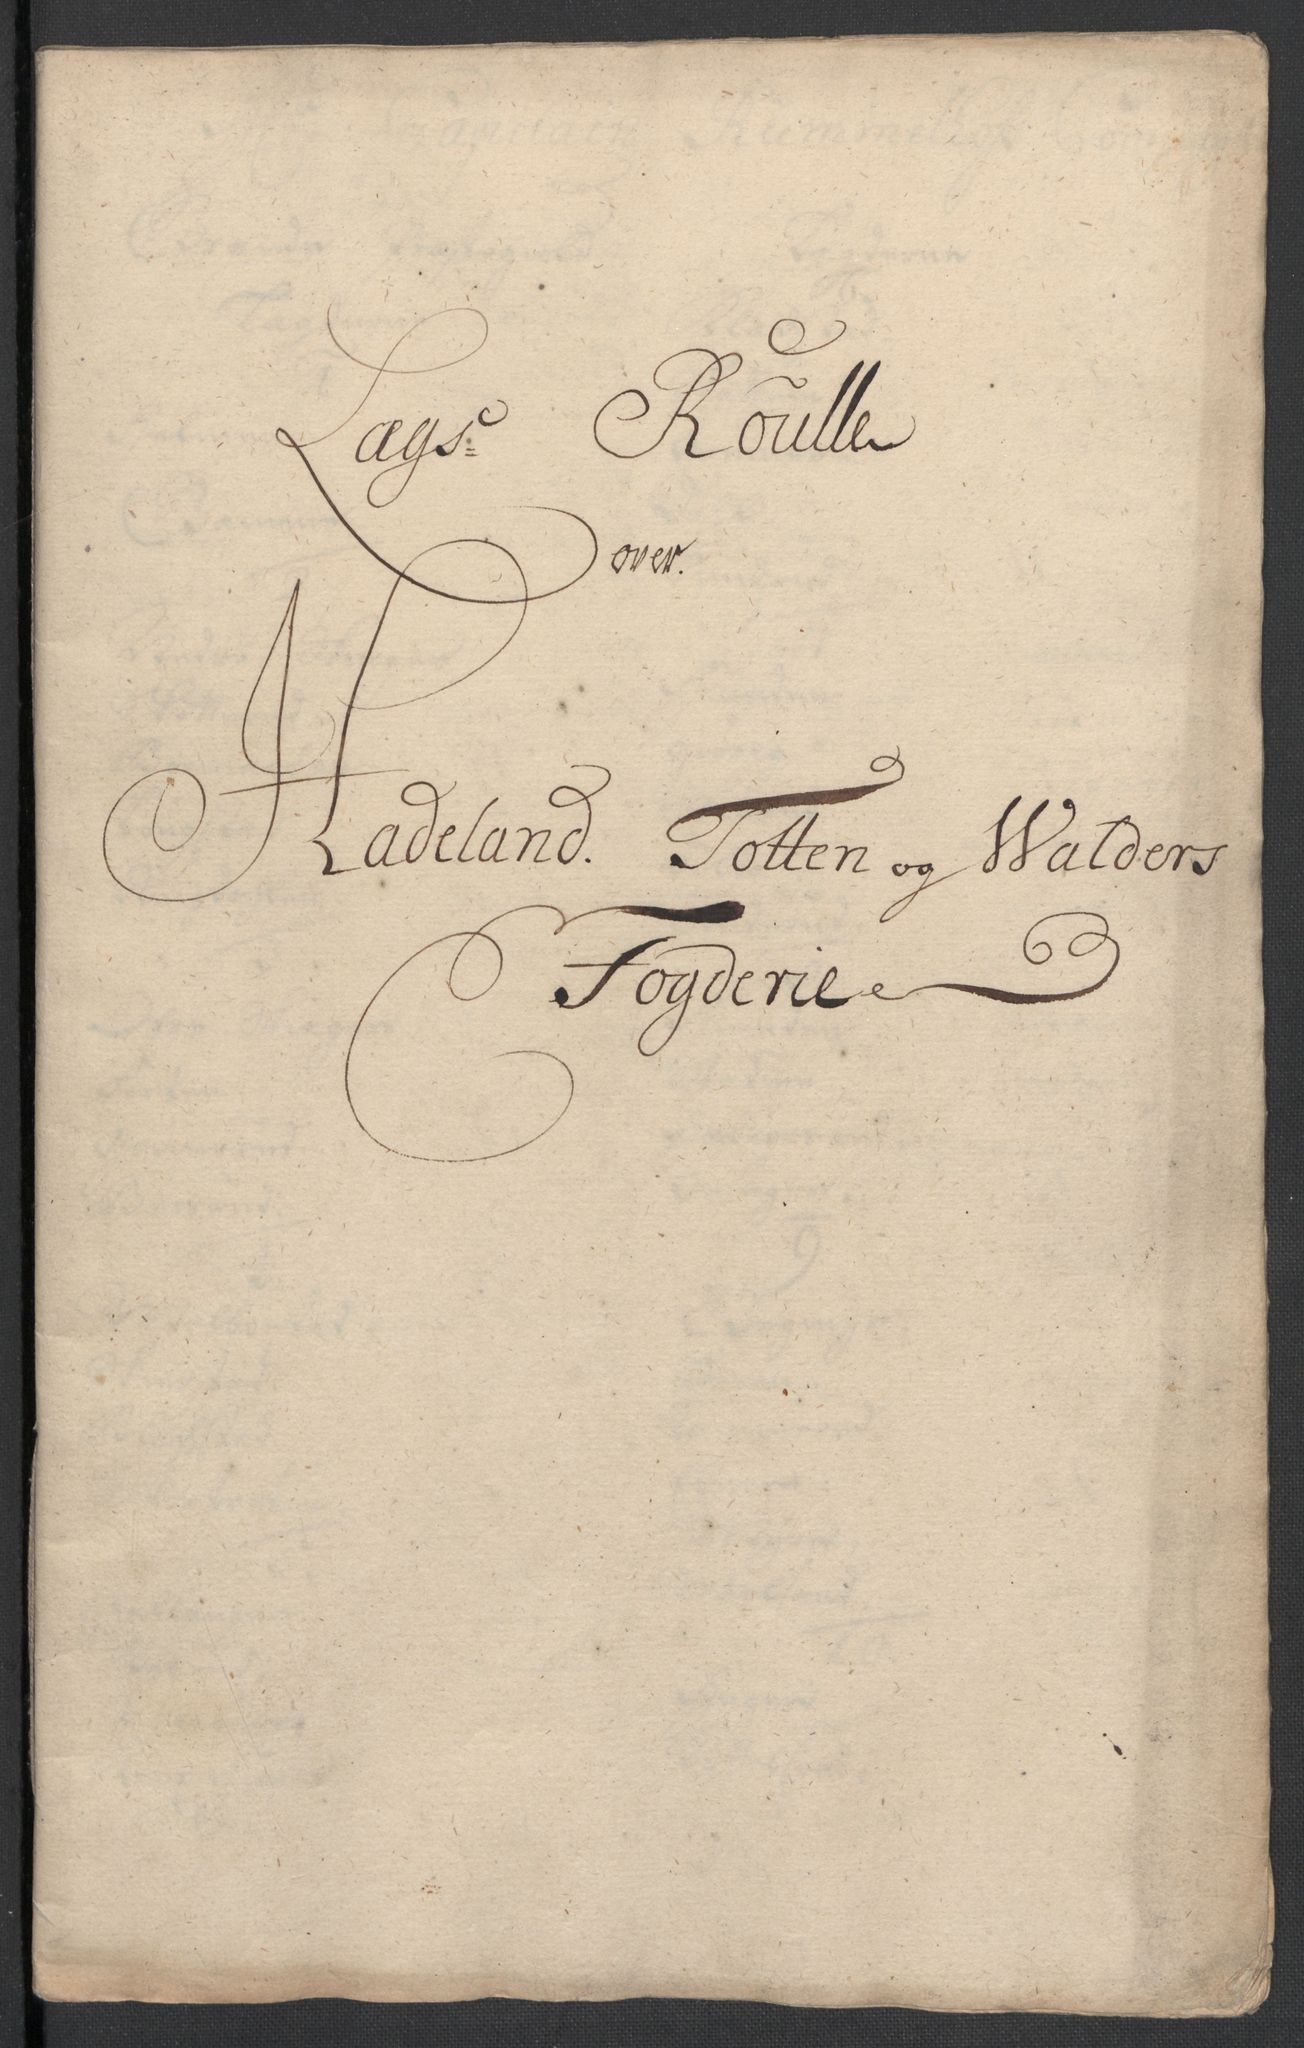 Lægs: Roulle
over.
Hadeland. Totten og Walders
Fogderie